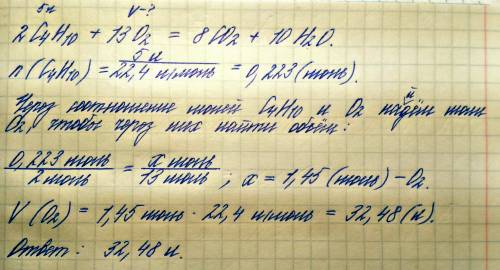 5л V-?
2C4H10 + 13O2 = 8CO2 + 10H2O.
n(C4H10) = 5 л / 22,4 л/моль = 0,223 (моль).
Через соотношение молей C4H10 и O2 найдём моли
O2, чтобы через них найти объём:
0,223 моль / 2 моль = x моль / 13 моль ; x = 1,45 (моль) - O2.
V (O2) = 1,45 моль · 22,4 л/моль = 32,48 (л).
Ответ: 32,48 л.